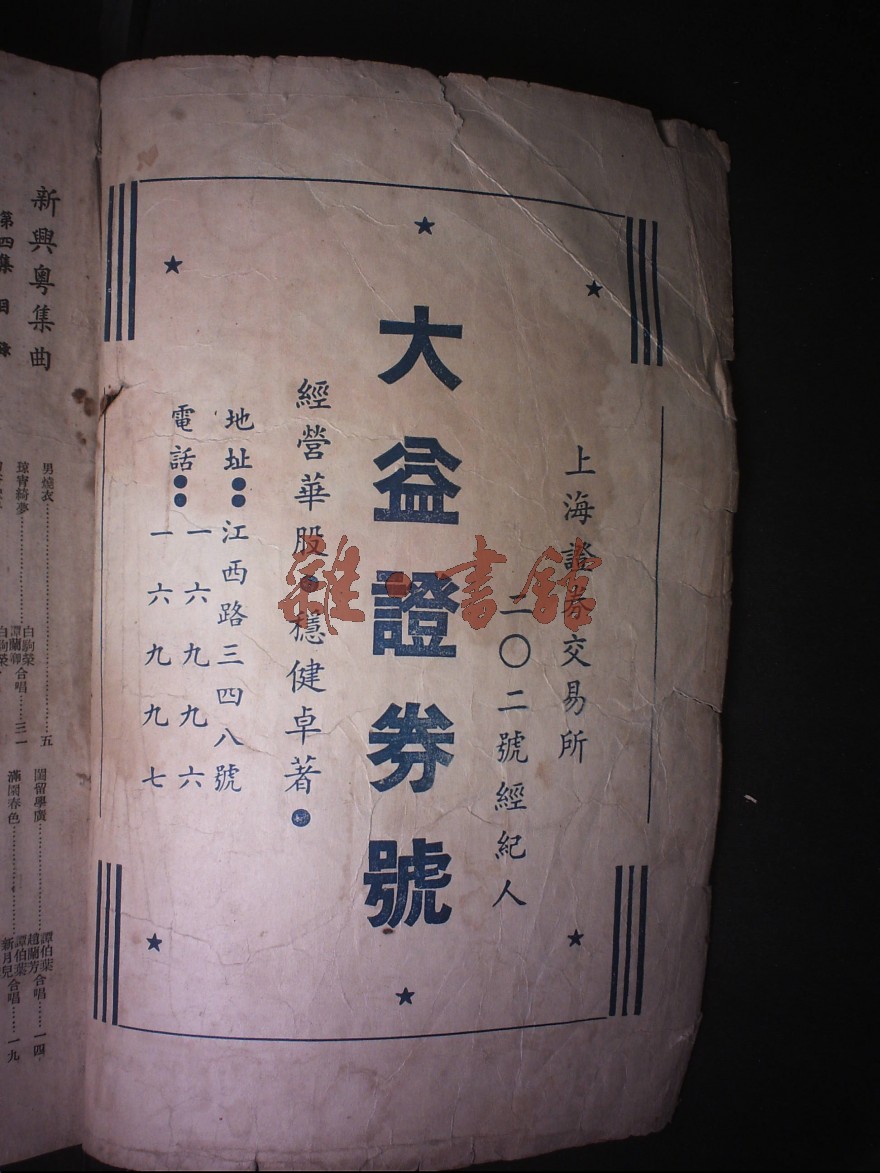 上海證券交易所
二〇二號經紀人
大益證券號
經營華股●穩健卓著●
地址：江西路三四八號
電話：一六九九六
一六九九七
新興粵集曲
第四集 目錄
男燒衣……白駒榮……五
琼宵綺夢……譚蘭卿合唱……三一
白駒榮
閨留學廣……譚伯葉 趙蘭芳合唱……一四
滿園春色……譚伯葉 新月兒合唱……一九
雜·書館